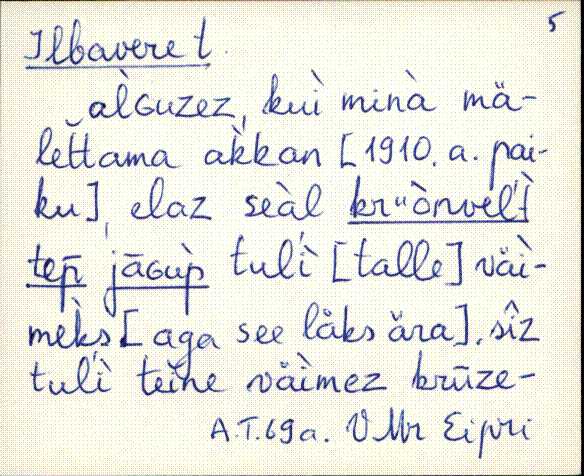 5
Ilbavere t.
ὰlGuzez, kuì minὰ mä-
lettama ὰkkan [1910. a. pai-
ku], elaz seὰl kr"ònvel'ì
tep̄ jāGùp tul'ì [talle] väì-
mèks [aga see läks ära]. sîz
tul'ì teine väìmez krūze-
A.T. 69 a. VMr Eipri